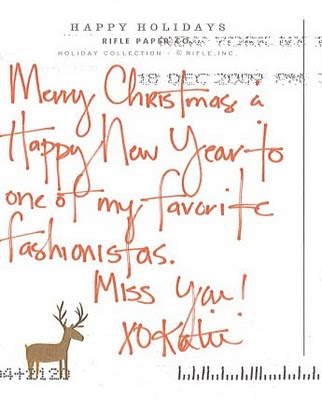 HAPPY HOLIDAYS
RIFLE PAPER CO.
HOLIDAY COLLECTION · © RIFLE, INC.
18 DEC 2009 PM
Merry Christmas &
Happy New Year to
one of my favorite
fashionistas.
Miss You!
XO Katie